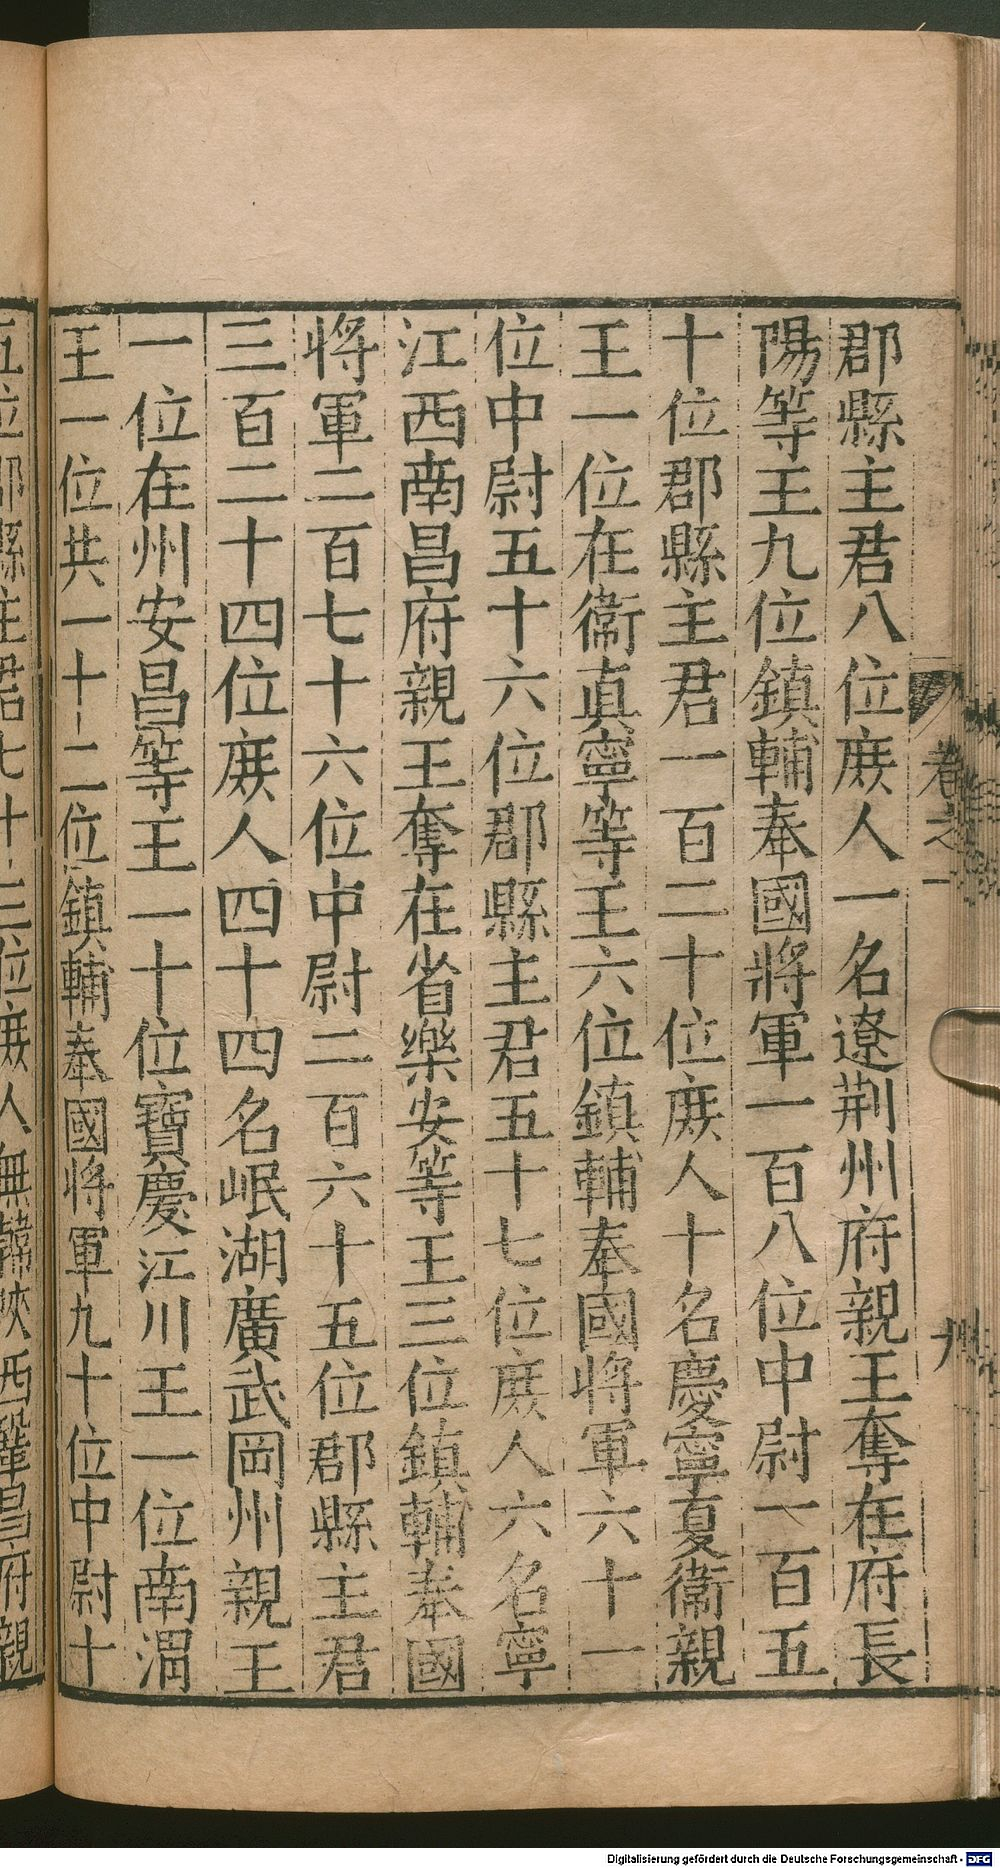 卷之一
九
郡縣主君八位庻人一名遼荆州府親王奪在府長
陽等王九位鎮輔奉國將軍一百八位中尉一百五
十位郡縣主君一百二十位庻人十名慶寧夏衞親
王一位在衞真寧等王六位鎮輔奉國将軍六十一
位中尉五十六位郡縣主君五十七位庻人六名寧
江西南昌府親王奪在省樂安等王三位鎮輔奉國
将軍二百七十六位中尉二百六十五位郡縣主君
三百二十四位庻人四十四名岷湖廣武岡州親王
一位在州安昌等王一十位寶慶江川王一位南渭
王一位共一十二位鎮輔奉國将軍九十位中尉十
五位郡縣主君七十三位庻人無韓陝西鞏昌府親
Digitalisierung gefördert durch die Deutsche Forschungsgemeinschaft - DFG